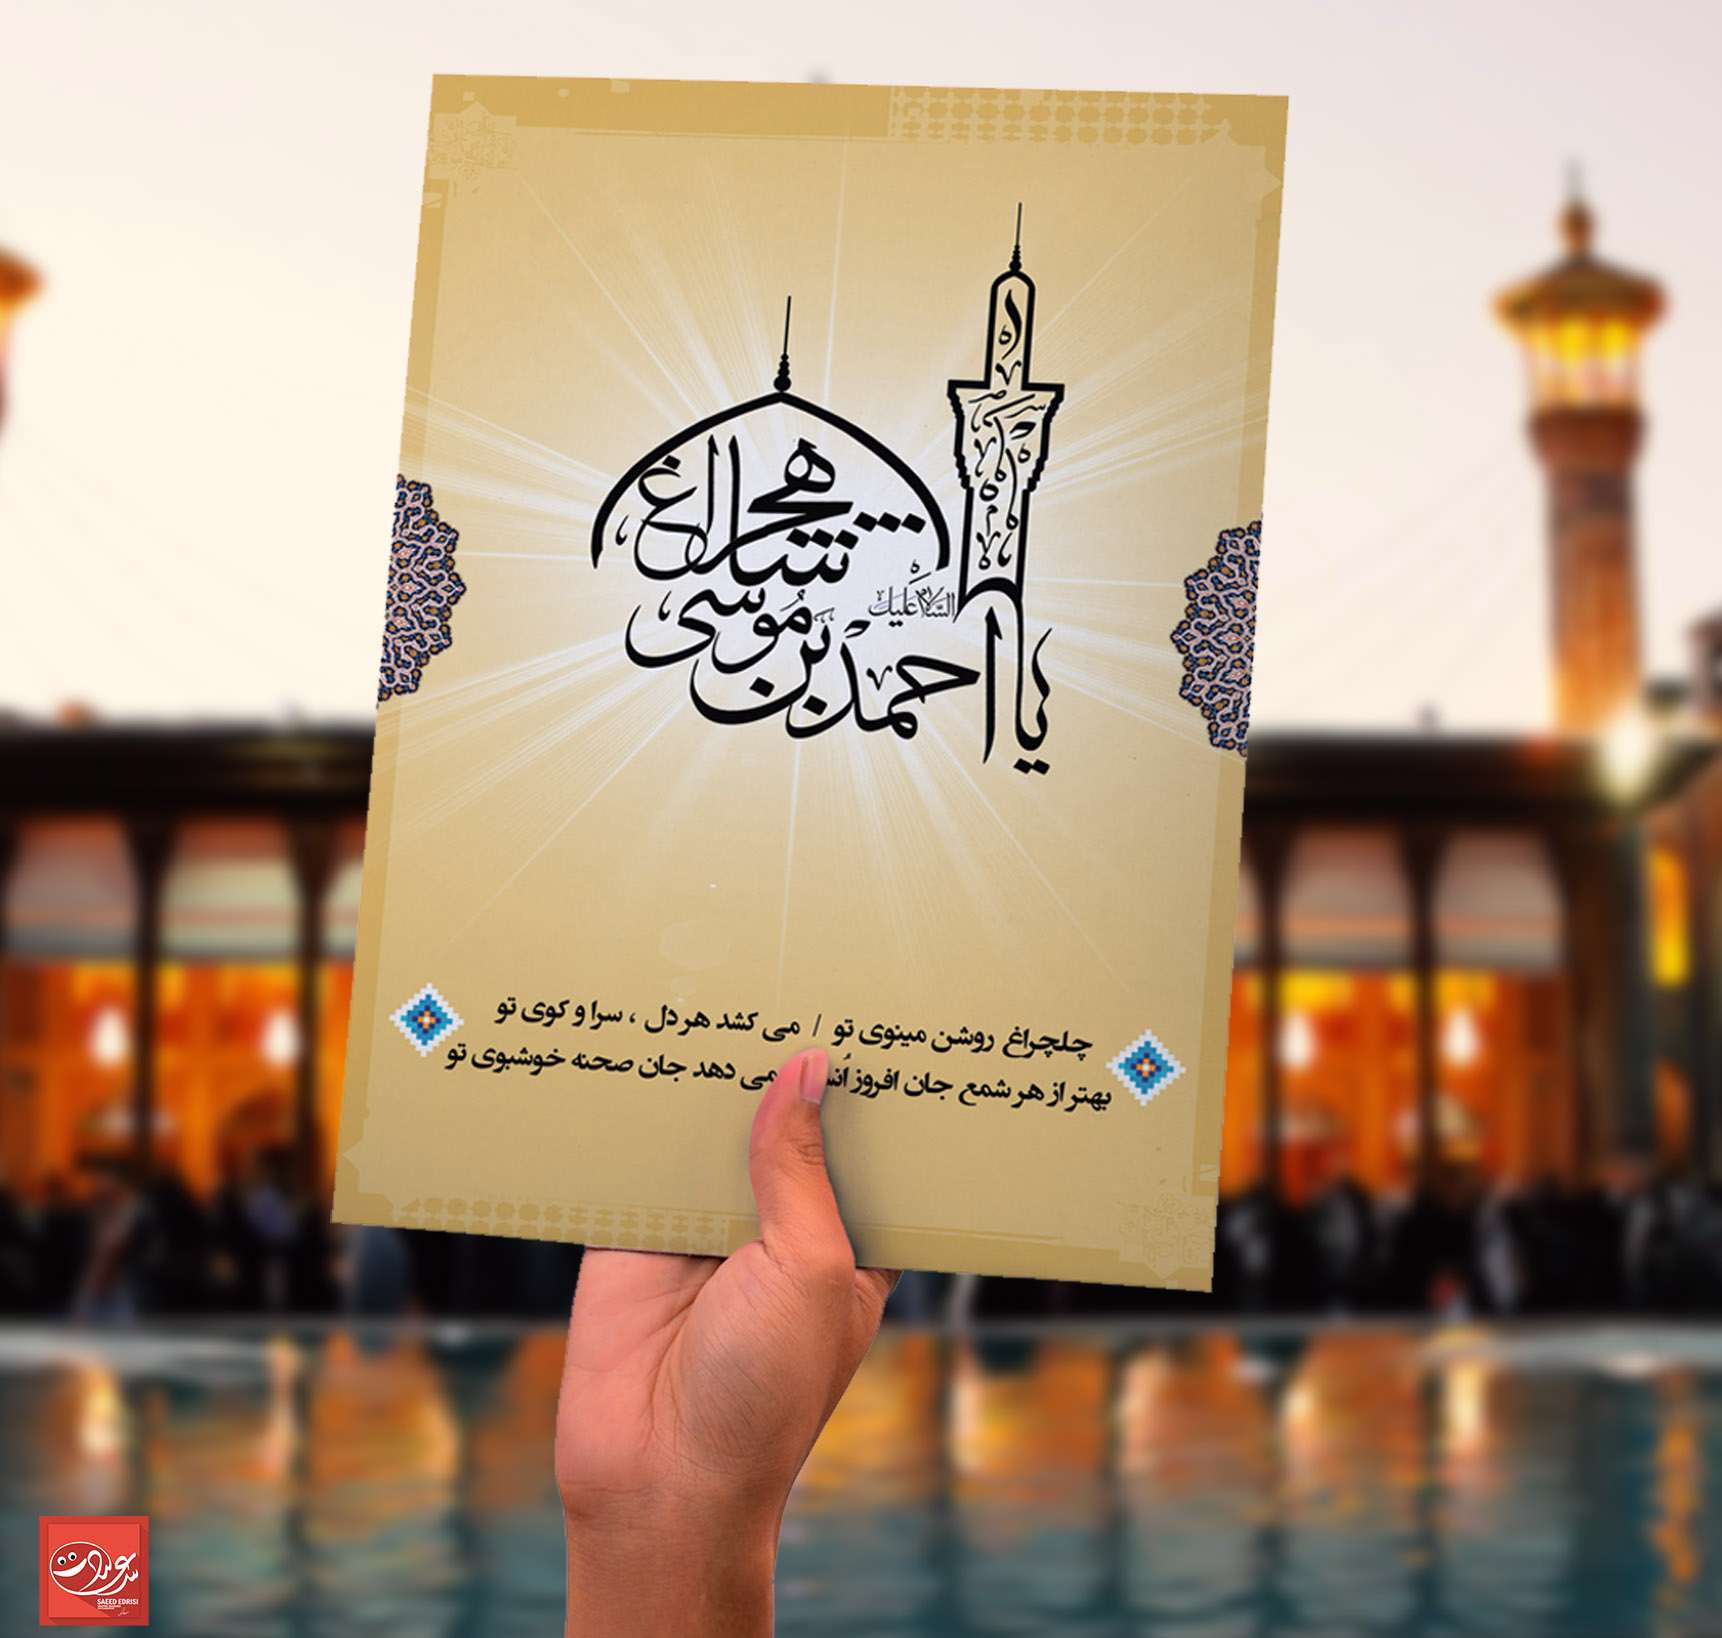 السلام علیک
یا احمد بن موسی
شاهچراغ
چلچراغ روشن مینوی تو / می کشد هر دل ، سرا و کوی تو
بهتر از هر شمع جان افروز می دهد جان صحنه خوشبوی تو
SAEED EDRISI